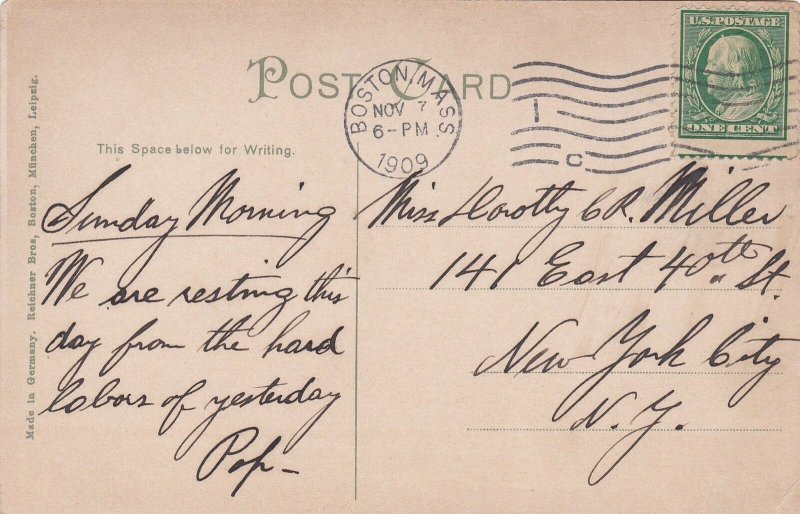 POST CARD
This Space below for Writing.
BOSTON, MASS
NOV 7
6-PM
1909
1
C
U.S. POSTAGE
ONE CENT
Made in Germany. Reichner Bros, Boston, München, Leipzig.
Sunday Morning
We are resting this
day from the hard
labors of yesterday
Pop-
Miss Dorothy C R. Miller
141 East 40th St.
New York City
N.Y.